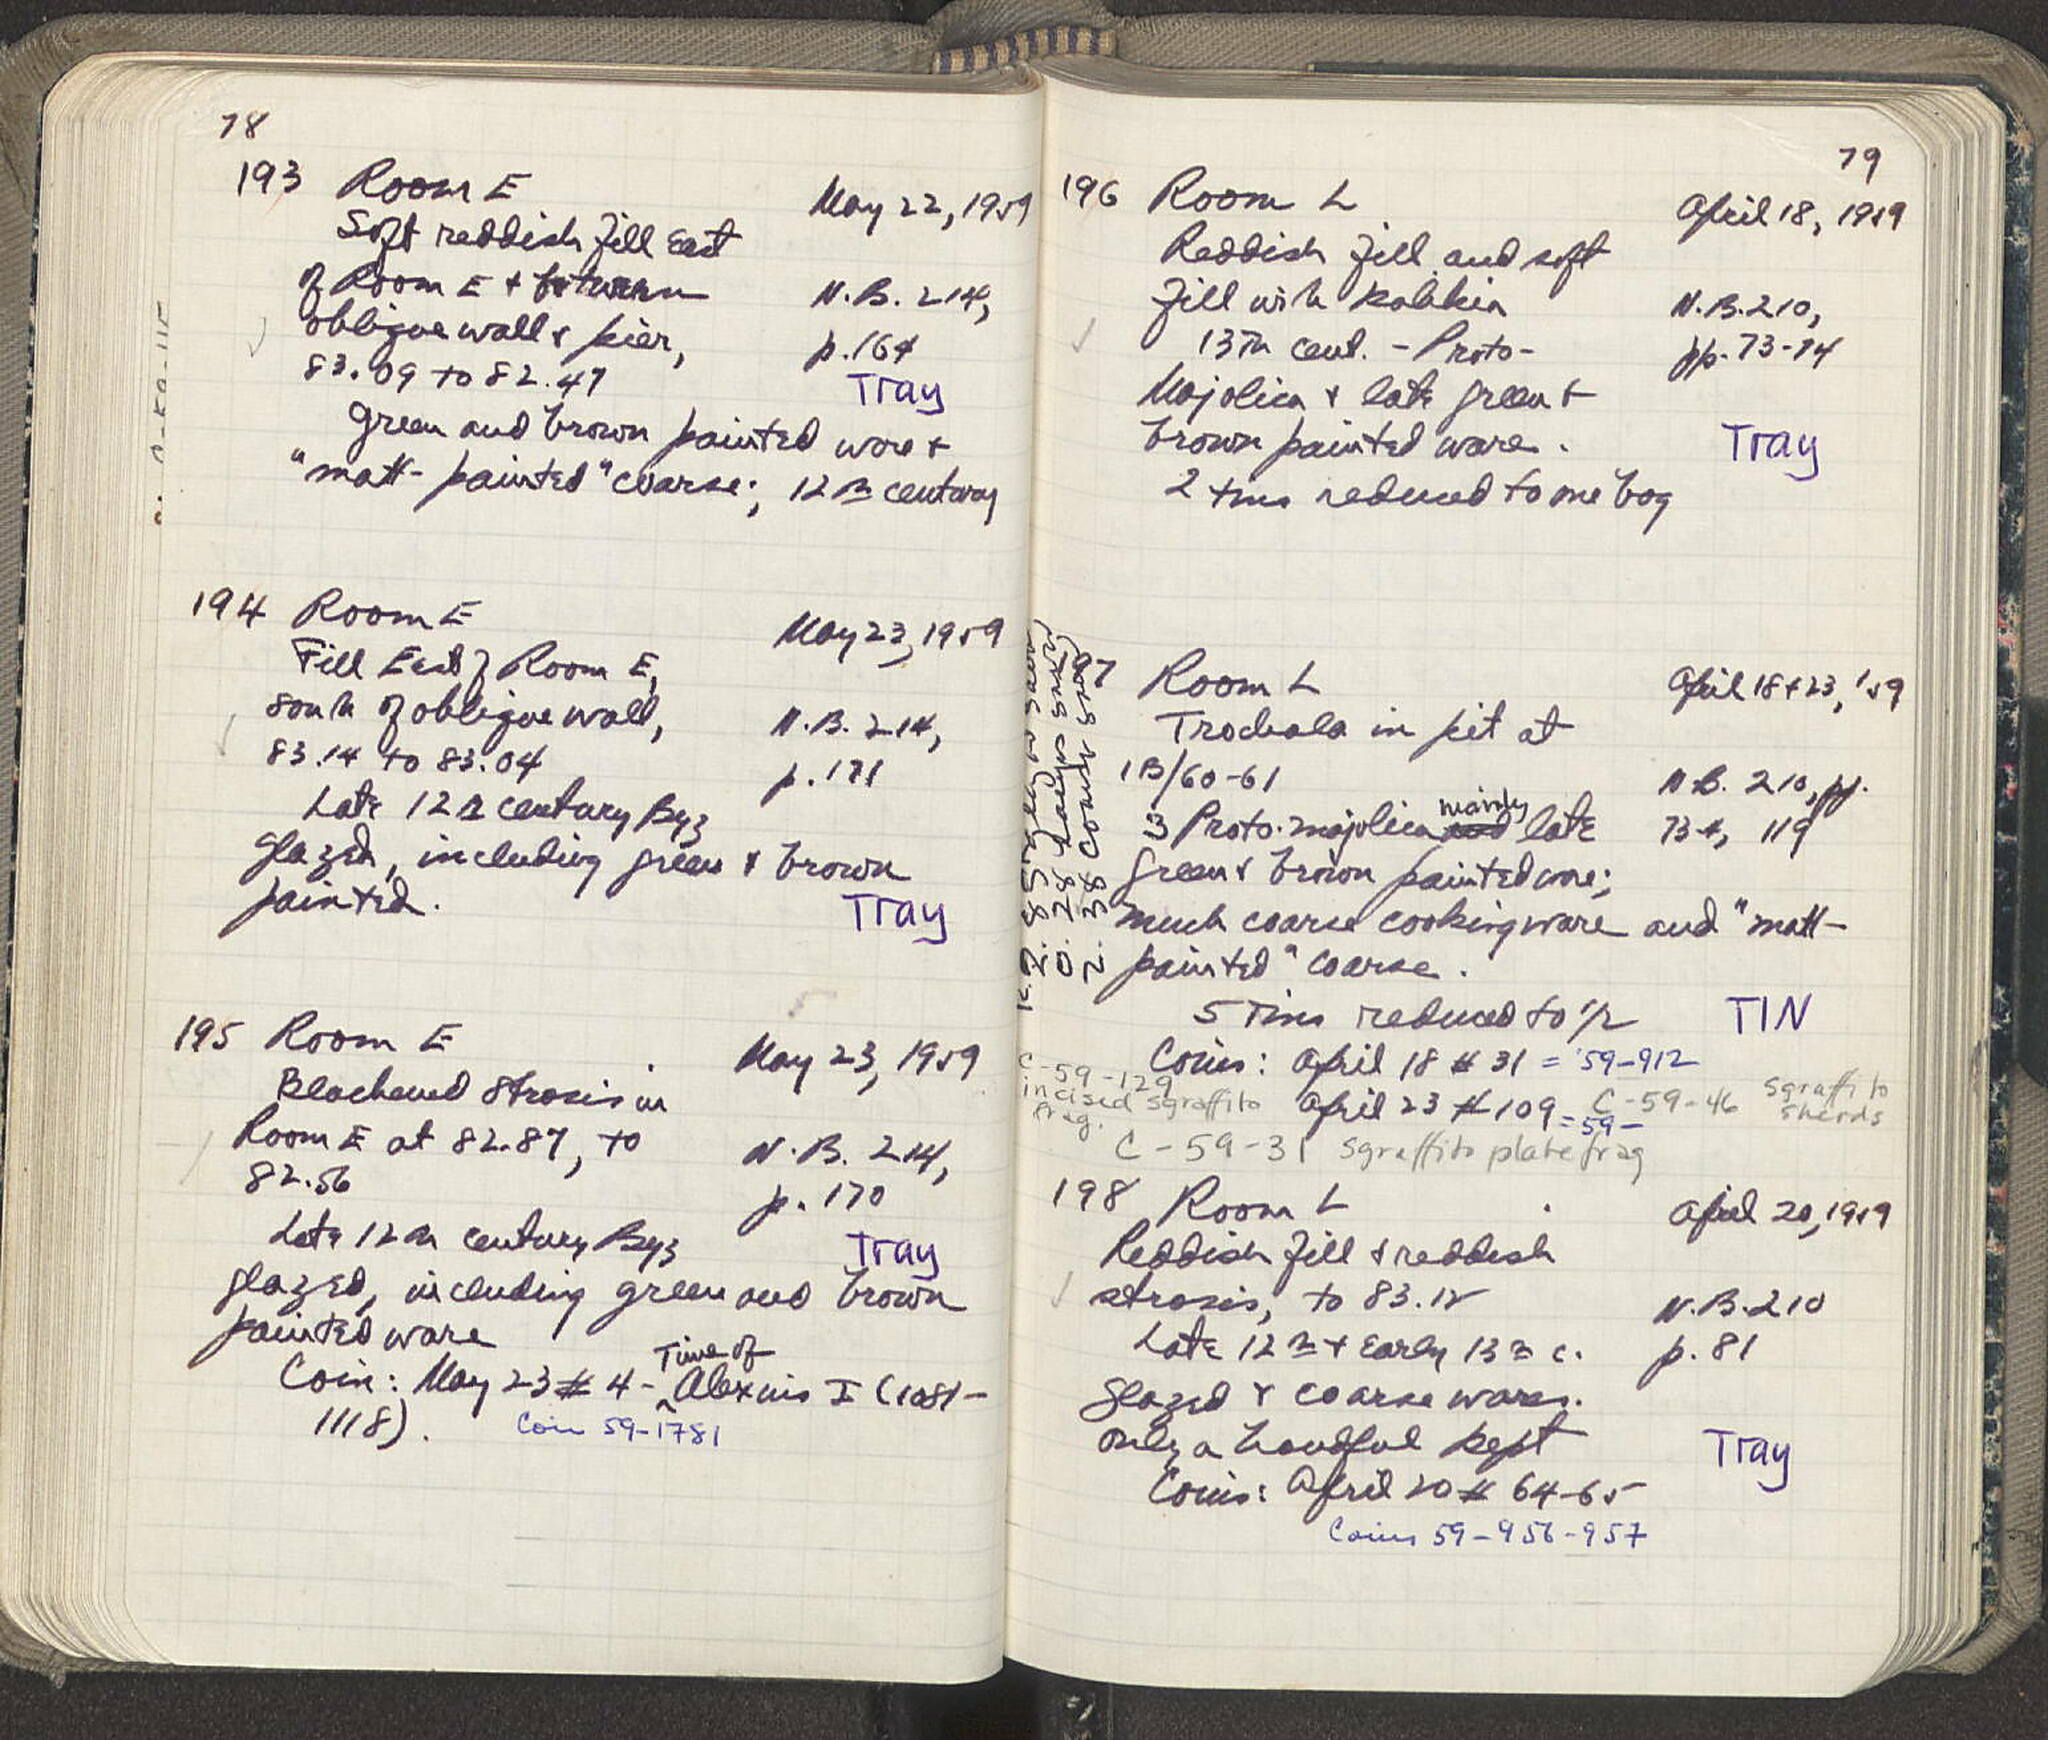 78
193 Room E May 22, 1959
Soft reddish fill East
of Room E + between N.B. 214,
oblique wall & pier, p. 164
83.09 to 82.47 Tray
Green and brown painted ware +
"matt-painted" coarse; 12th century
194 Room E May 23, 1959
Fill East of Room E,
south of oblique wall, N.B. 214,
83.14 to 83.04 p. 171
Late 12th century Byz
glazed, including green & brown
painted. Tray
195 Room E May 23, 1959
Blackened strosis in
Room E at 82.87, to N.B. 214,
82.56 p. 170
Late 12th century Byz Tray
glazed, including green and brown
painted ware
Coin: May 23 # 4 - Time of Alexius I (1081-
1118). Coin 59-1781
79
196 Room L April 18, 1959
Reddish fill and soft
fill with kalikia N.B. 210,
13th cent. - Proto- pp. 73-74
Majolica & late green +
brown painted ware. Tray
2 tins reduced to one bag
197 Room L April 18 + 23, '59
Trochala in pit at
1B/60-61 N.B. 210, pp.
3 Proto-majolica mainly late 73-4, 119
green & brown painted ware;
much coarse cooking ware and "matt-
painted" coarse.
5 Tins reduced to 1/2 TIN
Coins: April 18 # 31 = '59-912
April 23 # 109 = 59-
C-59-129
incised sgraffito
frag.
C-59-46 sgraffito
sherds
C-59-31 sgraffito plate frag
198 Room L April 20, 1959
Reddish fill & reddish
strosis, to 83.12 N.B. 210
Late 12th + Early 13th c. p. 81
glazed & coarse wares.
Only a handful kept Tray
Coins: April 20 # 64-65
Coins 59-956-957